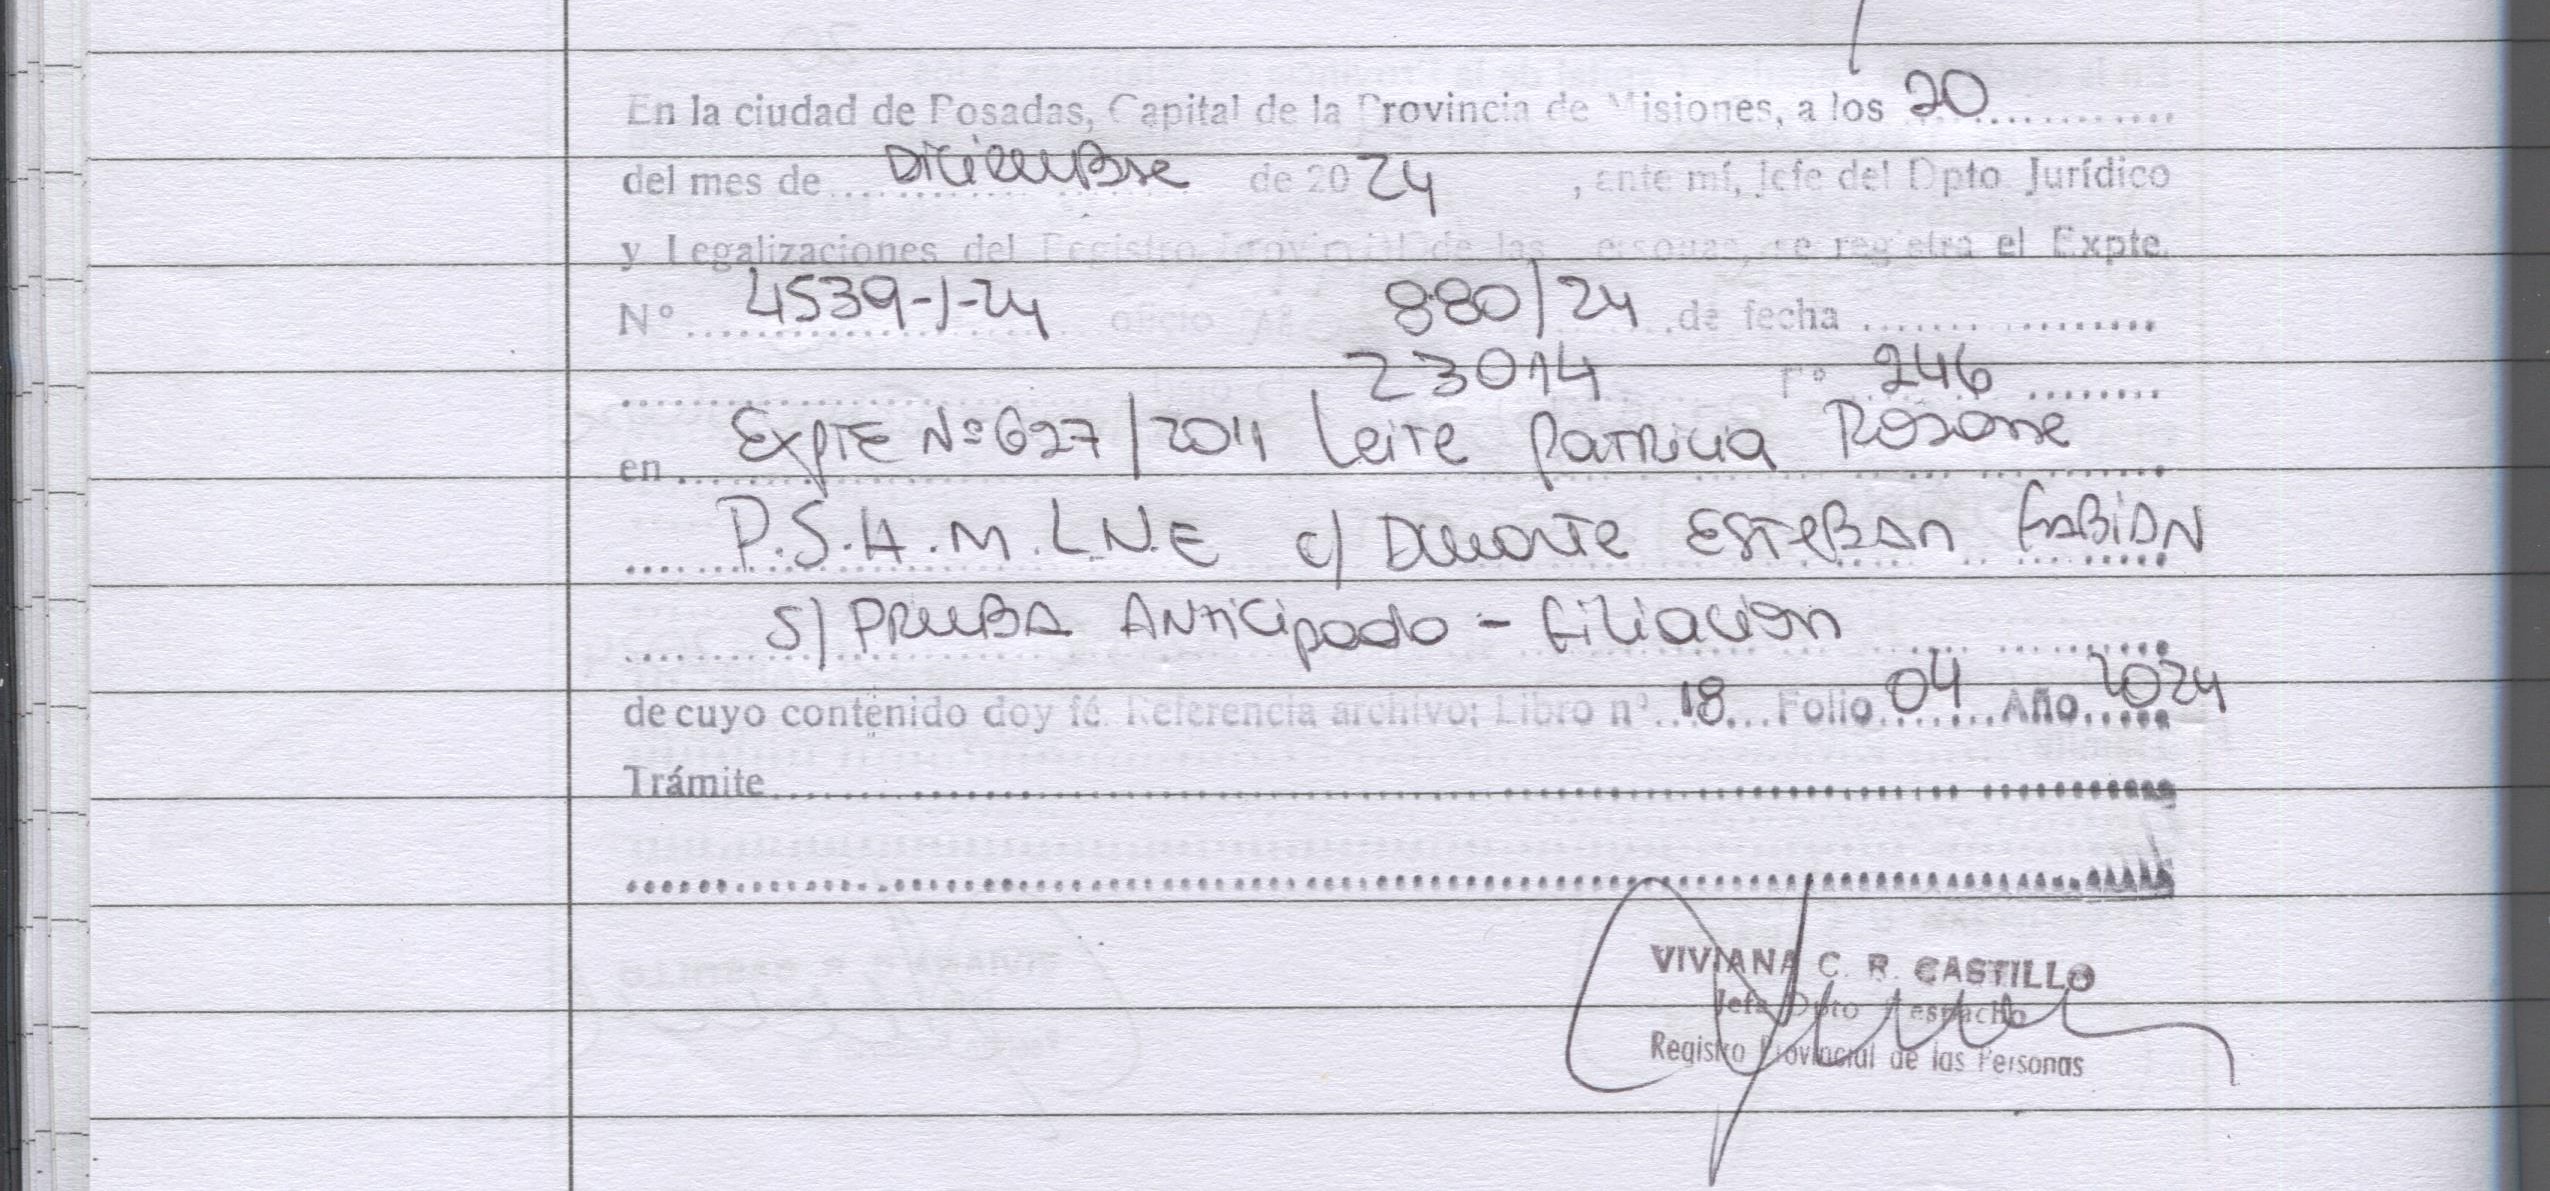 En la ciudad de Posadas, Capital de la Provincia de Misiones, a los 20
del mes de Diciembre de 2024, ante mí, Jefe del Dpto Jurídico
y Legalizaciones del Registro Provincial de las Personas, se registra el Expte.
Nº 4539-J-24 oficio Nº 880/24 de fecha
23014 Fº 246
en Expte Nº 627/2011 Leite Patricia Rosane
P.S.H.M.L.N.E c/ Duarte Esteban Fabian
S/ Prueba Anticipado - Filiación
de cuyo contenido doy fé. Referencia archivo: Libro nº 18 Folio 04 Año 2024
Trámite
VIVIANA C. R. CASTILLO
Jefa Dpto Despacho
Registro Provincial de las Personas